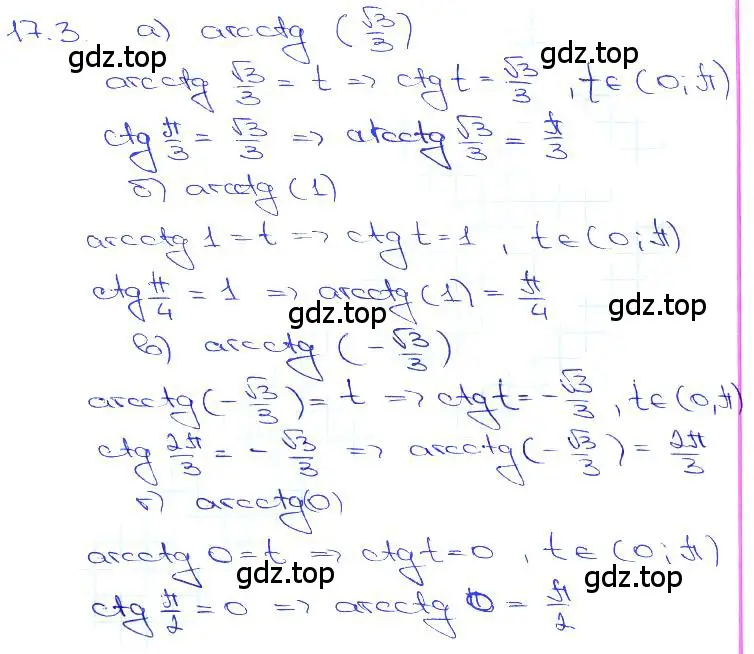 17.3. а) arcctg (√3/3)
gdz.top
arcctg √3/3 = t => ctg t = √3/3, t ∈ (0; π)
gdz.top
ctg π/3 = √3/3 => arcctg √3/3 = π/3
б) arcctg (1)
arcctg 1 = t => ctg t = 1, t ∈ (0; π)
ctg π/4 = 1 => arcctg (1) = π/4
gdz.top
gdz.top
в) arcctg (-√3/3)
arcctg (-√3/3) = t => ctg t = -√3/3, t ∈ (0, π)
ctg 2π/3 = -√3/3 => arcctg (-√3/3) = 2π/3
г) arcctg (0)
arcctg 0 = t => ctg t = 0, t ∈ (0; π)
gdz.top
gdz.top
ctg π/2 = 0 => arcctg 0 = π/2